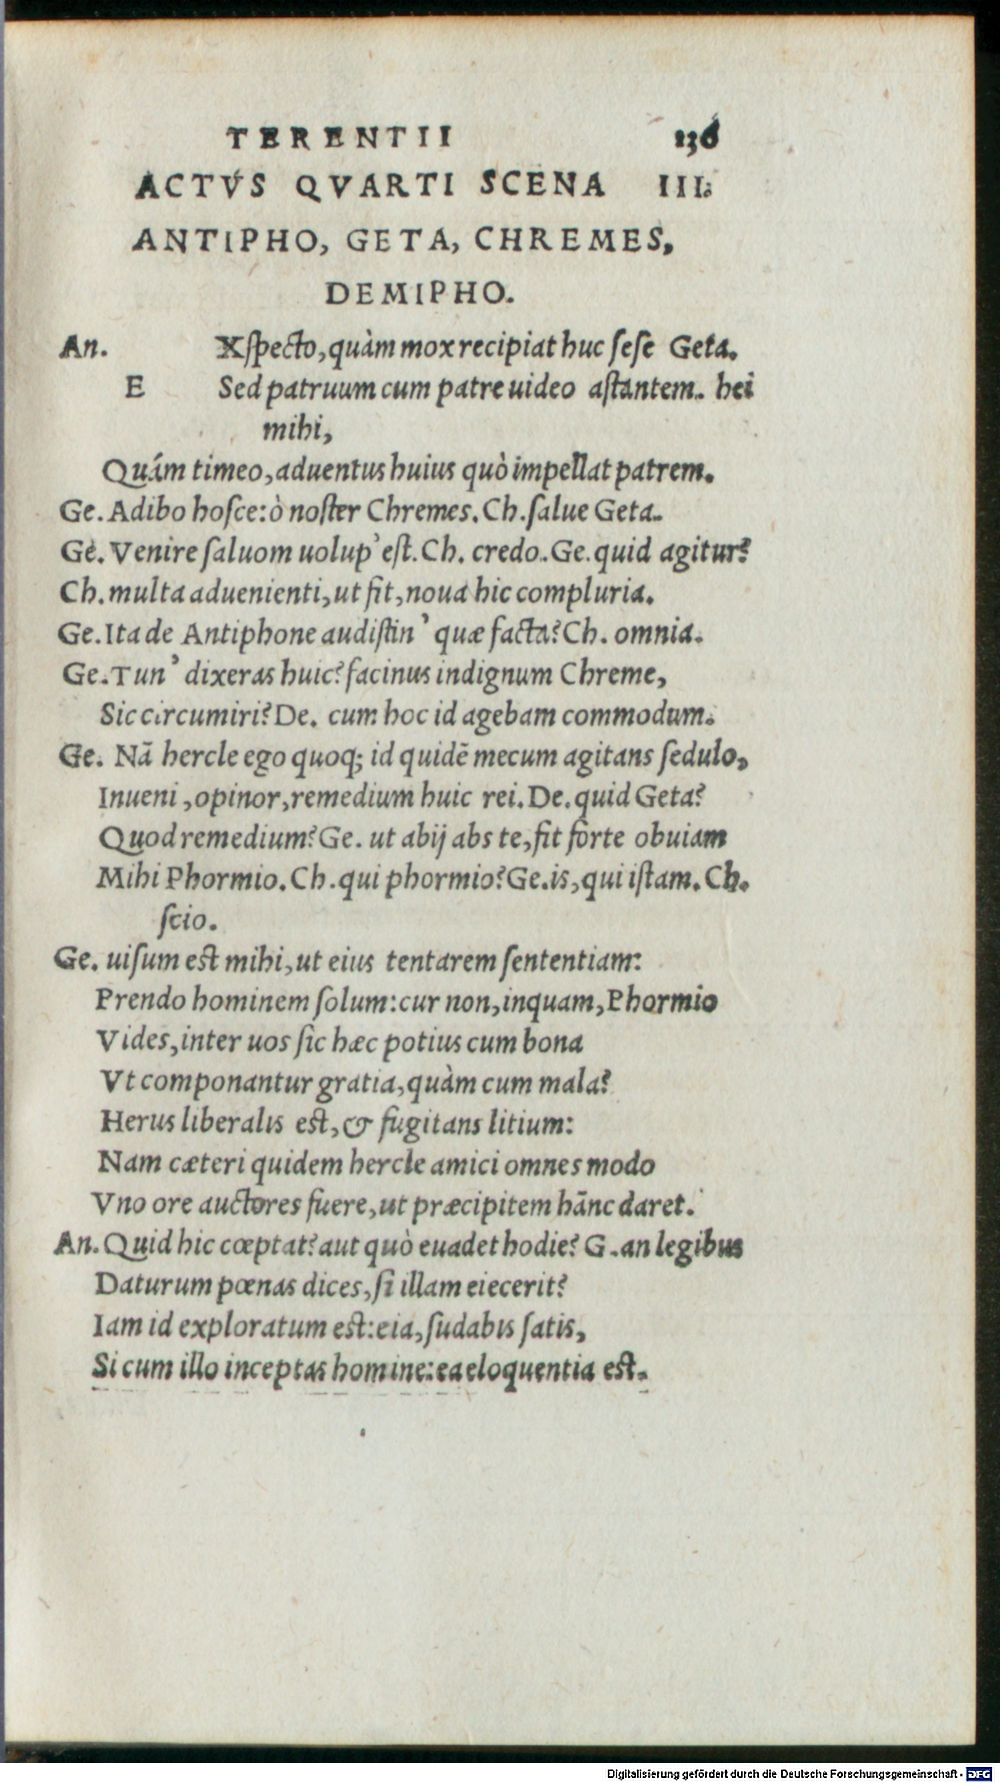 TERENTII 136
ACTVS QVARTI SCENA III.
ANTIPHO, GETA, CHREMES,
DEMIPHO.
An. Xſpecto, quàm mox recipiat huc ſeſe Geta.
E Sed patruum cum patre uideo aſtantem. hei
mihi,
Quám timeo, aduentus huius quò impellat patrem.
Ge. Adibo hoſce: ò noſter Chremes. Ch. ſalue Geta.
Ge. Venire ſaluom uolup' eſt. Ch. credo. Ge. quid agitur?
Ch. multa aduenienti, ut fit, noua hic compluria.
Ge. Ita de Antiphone audiſtin' quæ facta? Ch. omnia.
Ge. Tun' dixeras huic? facinus indignum Chreme,
Sic circumiri? De. cum hoc id agebam commodum.
Ge. Nā hercle ego quoq; id quidē mecum agitans ſedulo,
Inueni, opinor, remedium huic rei. De. quid Geta?
Quod remedium? Ge. ut abij abs te, fit forte obuiam
Mihi Phormio. Ch. qui phormio? Ge. is, qui iſtam. Ch.
ſcio.
Ge. uiſum eſt mihi, ut eius tentarem ſententiam:
Prendo hominem ſolum: cur non, inquam, Phormio
Vides, inter uos ſic hæc potius cum bona
Vt componantur gratia, quàm cum mala?
Herus liberalis eſt, & fugitans litium:
Nam cæteri quidem hercle amici omnes modo
Vno ore auctores fuere, ut præcipitem hānc daret.
An. Quid hic cœptat? aut quò euadet hodie? G. an legibus
Daturum pœnas dices, ſi illam eiecerit?
Iam id exploratum eſt: eia, ſudabis ſatis,
Si cum illo inceptas homine: ea eloquentia eſt.
Digitalisierung gefördert durch die Deutsche Forschungsgemeinschaft - DFG